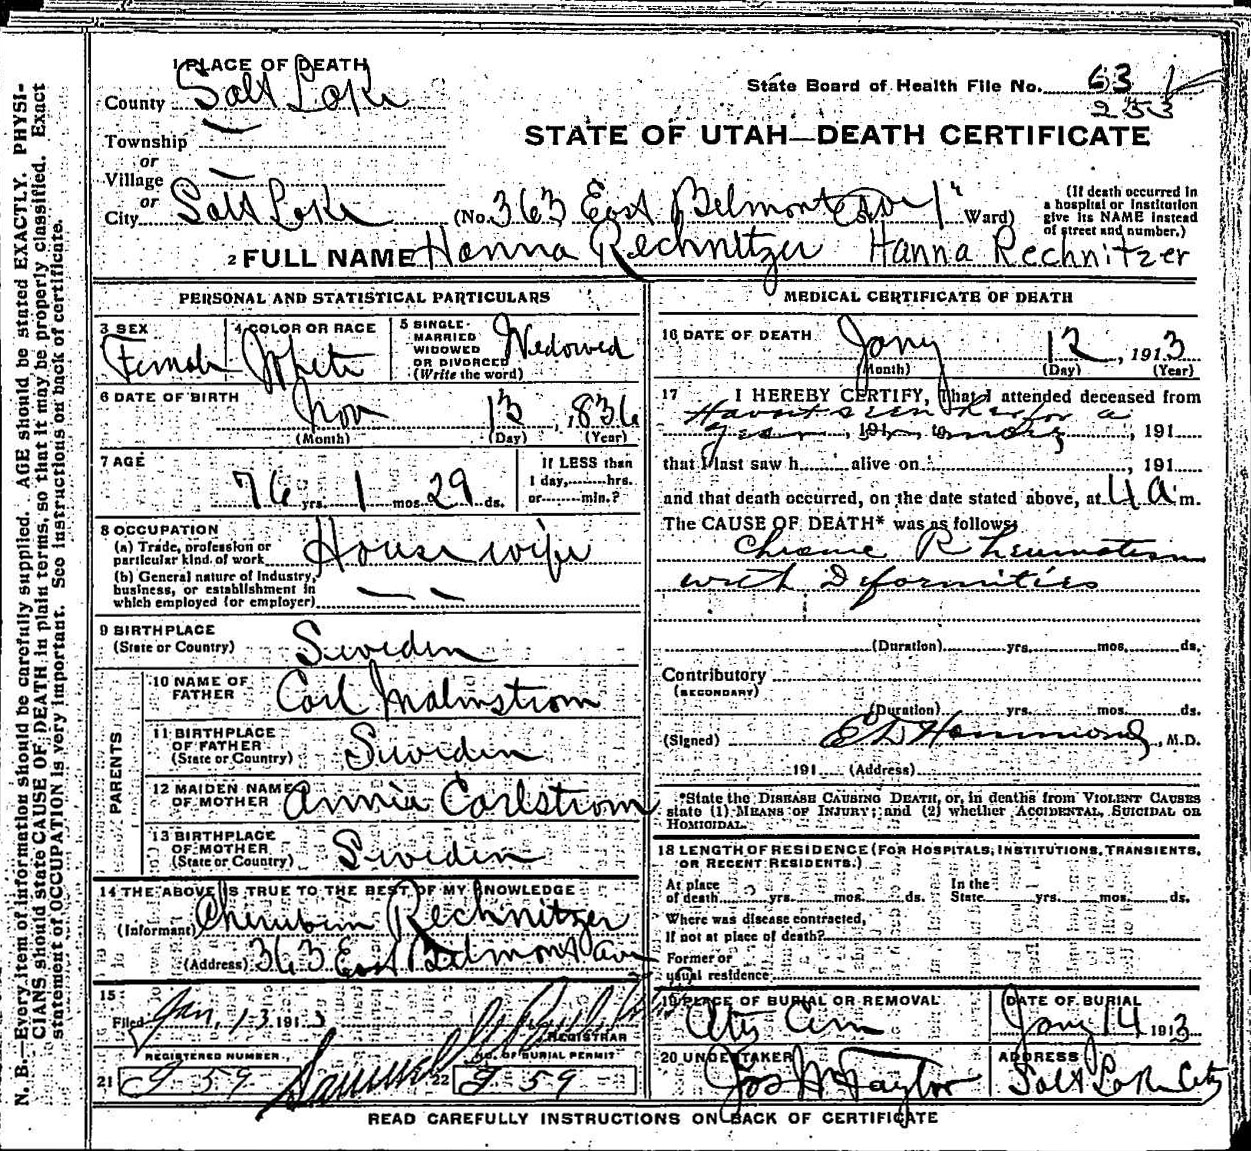 1 PLACE OF DEATH
County Salt Lake
State Board of Health File No. 63
253
STATE OF UTAH—DEATH CERTIFICATE
Township
or
Village
or
City Salt Lake (No. 363 East Belmont Ave St. 1st Ward)
(If death occurred in a hospital or institution give its NAME instead of street and number.)
2 FULL NAME Hanna Rechnitzer Hanna Rechnitzer
PERSONAL AND STATISTICAL PARTICULARS
3 SEX Female
4 COLOR OR RACE White
5 SINGLE- MARRIED WIDOWED OR DIVORCED (Write the word) Widowed
6 DATE OF BIRTH Nov 13, 1836
(Month) (Day) (Year)
7 AGE 76 yrs. 1 mos. 29 ds.
If LESS than 1 day, hrs. or min.?
8 OCCUPATION
(a) Trade, profession or particular kind of work House wife
(b) General nature of industry, business, or establishment in which employed (or employer)
9 BIRTHPLACE
(State or Country) Sweden
PARENTS
10 NAME OF FATHER Carl Malmstrom
11 BIRTHPLACE OF FATHER (State or Country) Sweden
12 MAIDEN NAME OF MOTHER Annie Carlstrom
13 BIRTHPLACE OF MOTHER (State or Country) Sweden
14 THE ABOVE IS TRUE TO THE BEST OF MY KNOWLEDGE
(Informant) Cherubim Rechnitzer
(Address) 363 East Belmont ave
15
Filed Jan. 13 1913
REGISTRAR
REGISTERED NUMBER NO. OF BURIAL PERMIT
21 J 59 Samuel 22 J 59
MEDICAL CERTIFICATE OF DEATH
16 DATE OF DEATH Jany 12, 1913
(Month) (Day) (Year)
17 I HEREBY CERTIFY, that I attended deceased from
Havent seen her for a
year, 191 to , 191
that I last saw h alive on , 191
and that death occurred, on the date stated above, at 4 a m.
The CAUSE OF DEATH* was as follows:
Chronic Rheumatism
with Deformities
(Duration) yrs. mos. ds.
Contributory
(SECONDARY)
(Duration) yrs. mos. ds.
(Signed) E D Hammond, M.D.
191 (Address)
*State the DISEASE CAUSING DEATH, or, in deaths from VIOLENT CAUSES
state (1) MEANS OF INJURY; and (2) whether ACCIDENTAL, SUICIDAL OR
HOMICIDAL.
18 LENGTH OF RESIDENCE (FOR HOSPITALS, INSTITUTIONS, TRANSIENTS,
OR RECENT RESIDENTS.)
At place of death yrs. mos. ds. In the State yrs. mos. ds.
Where was disease contracted,
If not at place of death?
Former or
usual residence
19 PLACE OF BURIAL OR REMOVAL DATE OF BURIAL
City Cem Jany 14 1913
20 UNDERTAKER ADDRESS
Jos Wm Taylor Salt Lake City
READ CAREFULLY INSTRUCTIONS ON BACK OF CERTIFICATE
N. B.—Every item of information should be carefully supplied. AGE should be stated EXACTLY. PHYSI-
CIANS should state CAUSE OF DEATH in plain terms, so that it may be properly classified. Exact
statement of OCCUPATION is very important. See instructions on back of certificate.